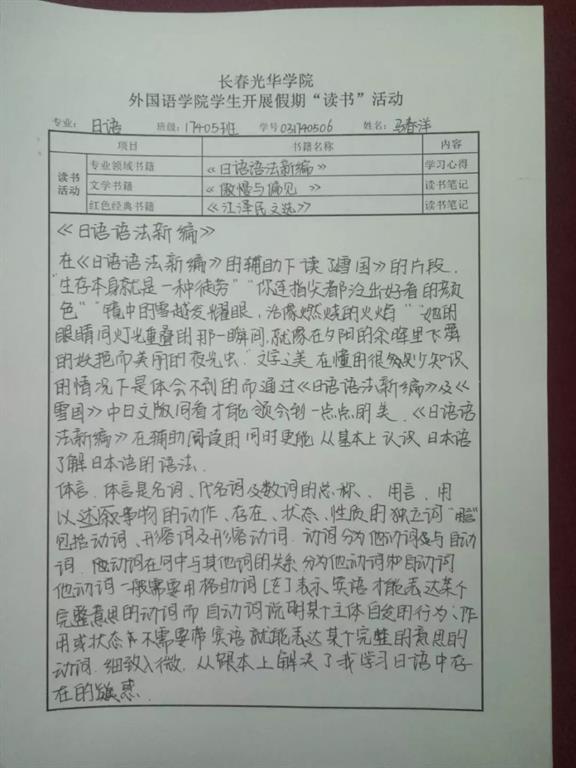 长春光华学院
外国语学院学生开展假期“读书”活动
专业：日语 班级：17405班 学号031740506 姓名：马春洋
项目 书籍名称 内容
读书活动 专业领域书籍 《日语语法新编》 学习心得
文学书籍 《傲慢与偏见》 读书笔记
红色经典书籍 《江泽民文选》 读书笔记
《日语语法新编》
在《日语语法新编》的辅助下读了雪国》的片段.
"生存本身就是一种徒劳""你连指尖都泛出好看的颜
色""镜中的雪越发耀眼，活像燃烧的火焰""她的
眼睛同灯光重叠的那一瞬间,就像在夕阳的余晖里飞舞
的妖艳而美丽的夜光虫."文字之美在懂的很多知识
的情况下是体会不到的而通过《日语语法新编》及《
雪国》中日文版同看才能领会到一点点的美.《日语语
法新编》在辅助阅读的同时更能从基本上认识日本语
了解日本语的语法.
体言.体言是名词、代名词及数词的总称、用言.用
以述叙事物的动作、存在、状态、性质的独立词"用言"
包括动词、形容词及形容动词.动词分为他动词与自动
词.动词在句中与其他词的关系分为他动词和自动词
他动词一般需要用格助词[を]表示宾语才能表达某个
完整意思的动词而自动词说明某个主体自发的行为、作
用或状态不需要带宾语就能表达某个完整的意思的
动词.细致入微.从根本上解决了我学习日语中存
在的疑惑.